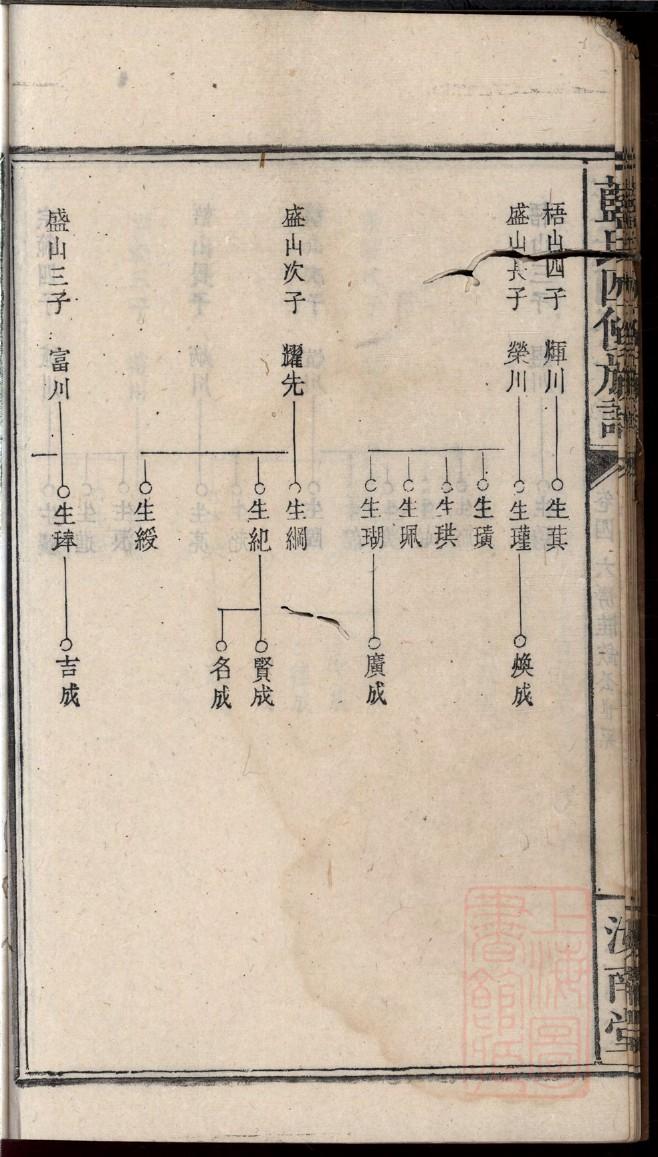 藍氏四修族譜
卷四 六房
汝南堂
梧山四子 輝川
生蓂
盛山長子 榮川
生瑾
煥成
生璜
生琪
生珮
生瑚
廣成
盛山次子 耀先
生綱
生紀
賢成
名成
生綬
盛山三子 富川
生璋
吉成
上海圖書館藏